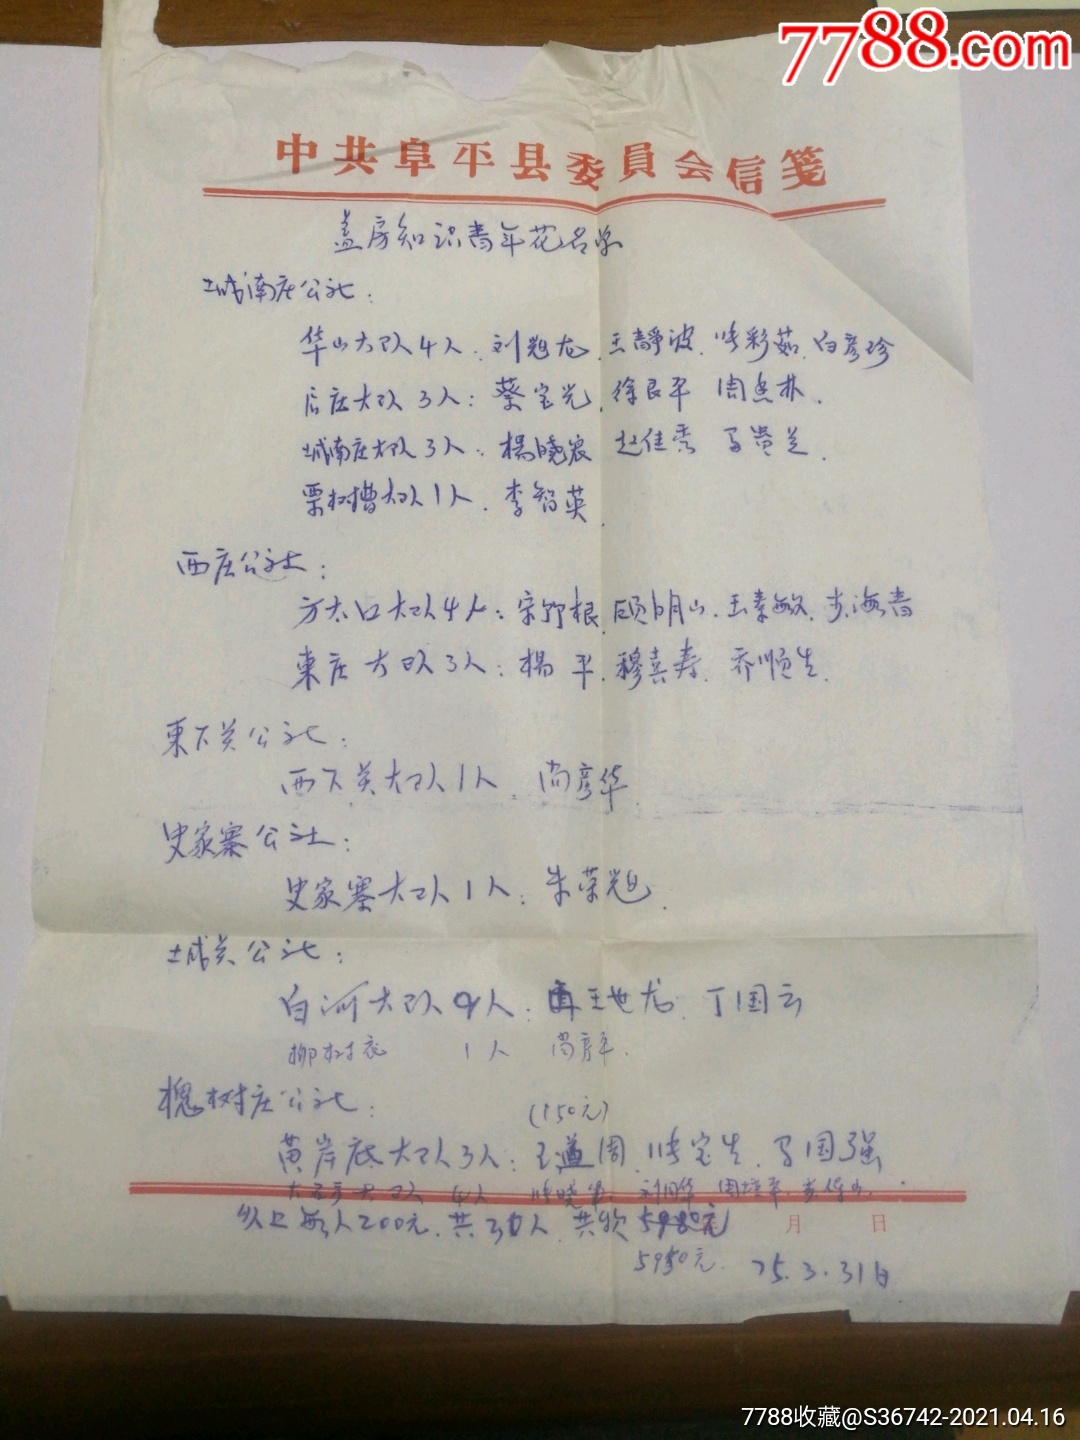 7788.com
中共阜平县委員会信笺
盖房知识青年花名
城南庄公社：
华山大队4人：刘旭龙、王静波、张彩茹、白彦珍
后庄大队3人：蔡宝光、徐良平 周忠林、
城南庄大队3人：楊晓宸 赵佳秀 马贵兰、
栗树槽大队1人、李智英
西庄公社：
方太口大队4人：宋野根、顾明山、王素敏、步海青
東庄大队3人：楊平、穆喜寿、乔顺生、
東下关公社：
西下关大队1人、尚彦华
史家寨公社：
史家寨大队1人：朱荣旭、
城关公社：
白河大队 人：王世龙、丁国云
柳树底 1人 尚彦
槐树庄公社： (150元)
黄岸底大队3人：王道周、张宝生、马国强
大 大队 4人 张晓 刘同华 周
以上每人200元、共30人、共 5980元 月 日
5950元、75.3.31日
7788收藏@S36742-2021.04.16